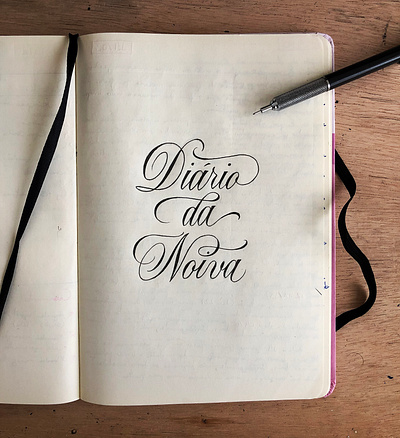 Diário
da
Noiva